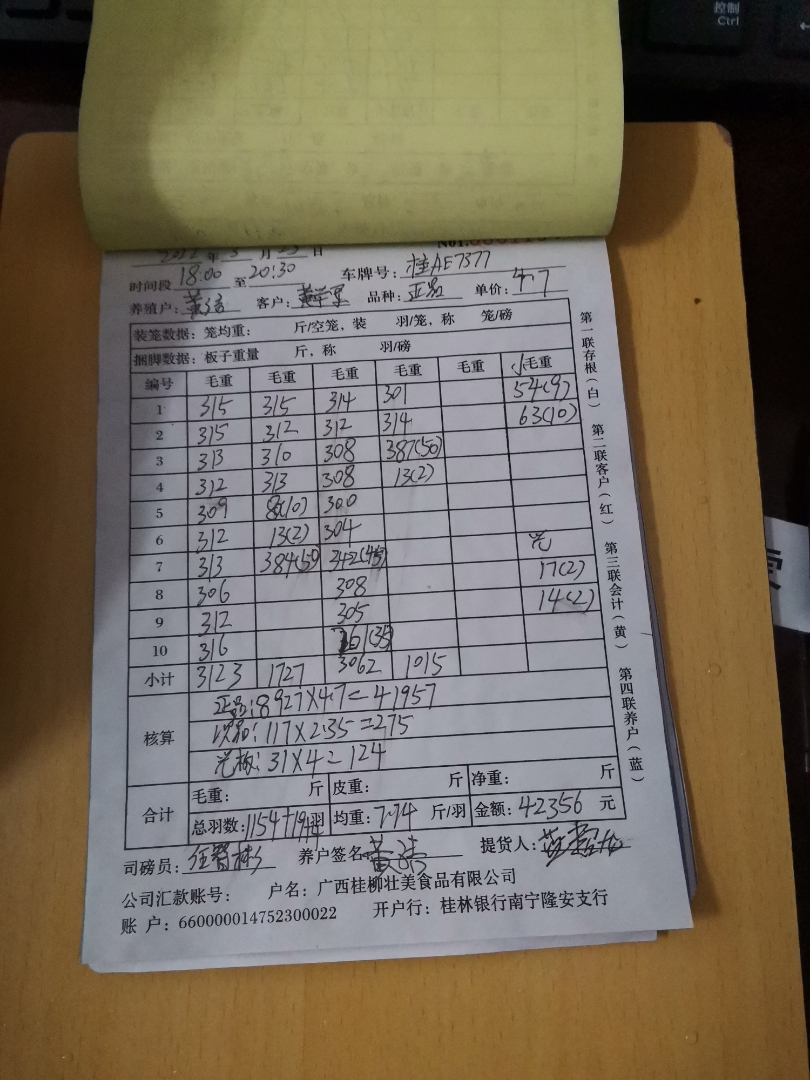 控制
Ctrl
2022年5月25日
时间段 18:00 至 20:30 车牌号: 桂AE7377
养殖户: 客户: 品种: 正品 单价: 4.7
装笼数据: 笼均重: 斤/空笼, 装 羽/笼, 称 笼/磅
捆脚数据: 板子重量 斤, 称 羽/磅
编号 毛重 毛重 毛重 毛重 毛重 小毛重
1 315 315 314 301 54(9)
2 315 312 312 314 63(10)
3 313 310 308 387(50)
4 312 313 308 13(2)
5 309 80(10) 300
6 312 13(2) 304
7 313 384(50) 342(45) 光
8 306 308 17(2)
9 312 305 14(2)
10 316 261(35)
小计 3123 1727 3062 1015
核算
正品: 8927×4.7=41957
次品: 117×2.35=275
光板: 31×4=124
合计 毛重: 斤 皮重: 斤 净重: 斤
总羽数: 1154+19羽 均重: 7.74 斤/羽 金额: 42356 元
司磅员: 养户签名: 提货人:
公司汇款账号: 户名: 广西桂柳壮美食品有限公司
账 户: 660000014752300022 开户行: 桂林银行南宁隆安支行
第一联存根(白) 第二联客户(红) 第三联会计(黄) 第四联养户(蓝)